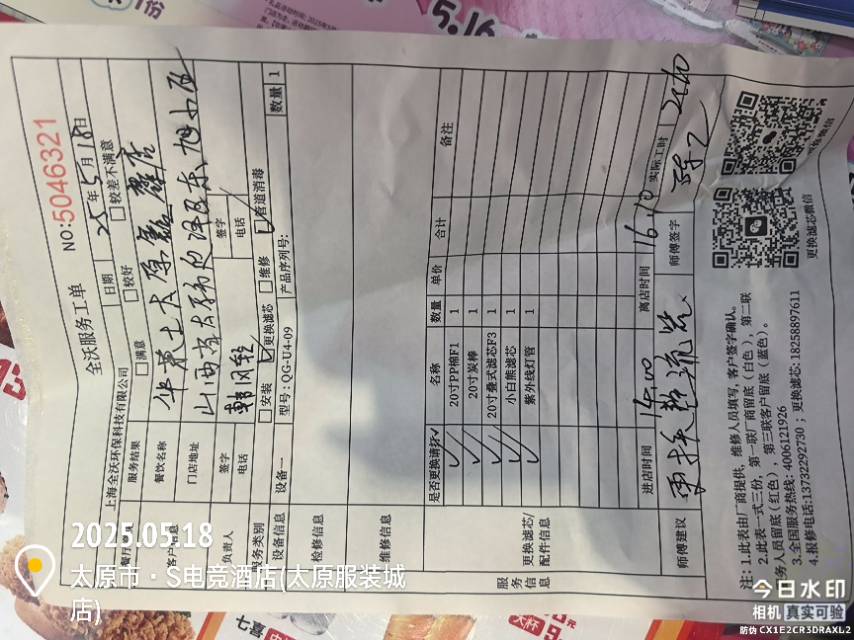 全沃服务工单
NO:5046321
上海全沃环保科技有限公司
日期 25年5月18日
服务结果 满意 较好 较差不满意
客户信息
餐饮名称
门店地址
负责人 签字
电话
签字
电话
服务类别 安装 更换滤芯 维修 管道消毒
设备信息 设备一 型号:QG-U4-09 产品序列号: 数量 1
检修信息
维修信息
服务信息
更换滤芯/配件信息
是否更换请打✓ 名称 数量 单价 合计 备注
✓ 20寸PP棉F1 1
✓ 20寸炭棒 1
✓ 20寸叠式滤芯F3 1
✓ 小白熊滤芯 1
✓ 紫外线灯管 1
进店时间 14.00 离店时间 16.10 实际工时
师傅建议 师傅签字
注:1.此表由厂商提供,维修人员填写,客户签字确认。
2.此表一式三份,第一联厂商留底(白色),第二联
服务人员留底(红色),第三联客户留底(蓝色)。
3.全国服务热线:4006121926
4.报修电话:13732292730;更换滤芯:18258897611
更换滤芯微信
2025.05.18
太原市·S电竞酒店(太原服装城
店)
今日水印
相机 真实可验
防伪 CX1E2CR3DRAXL2
5.16
七喜